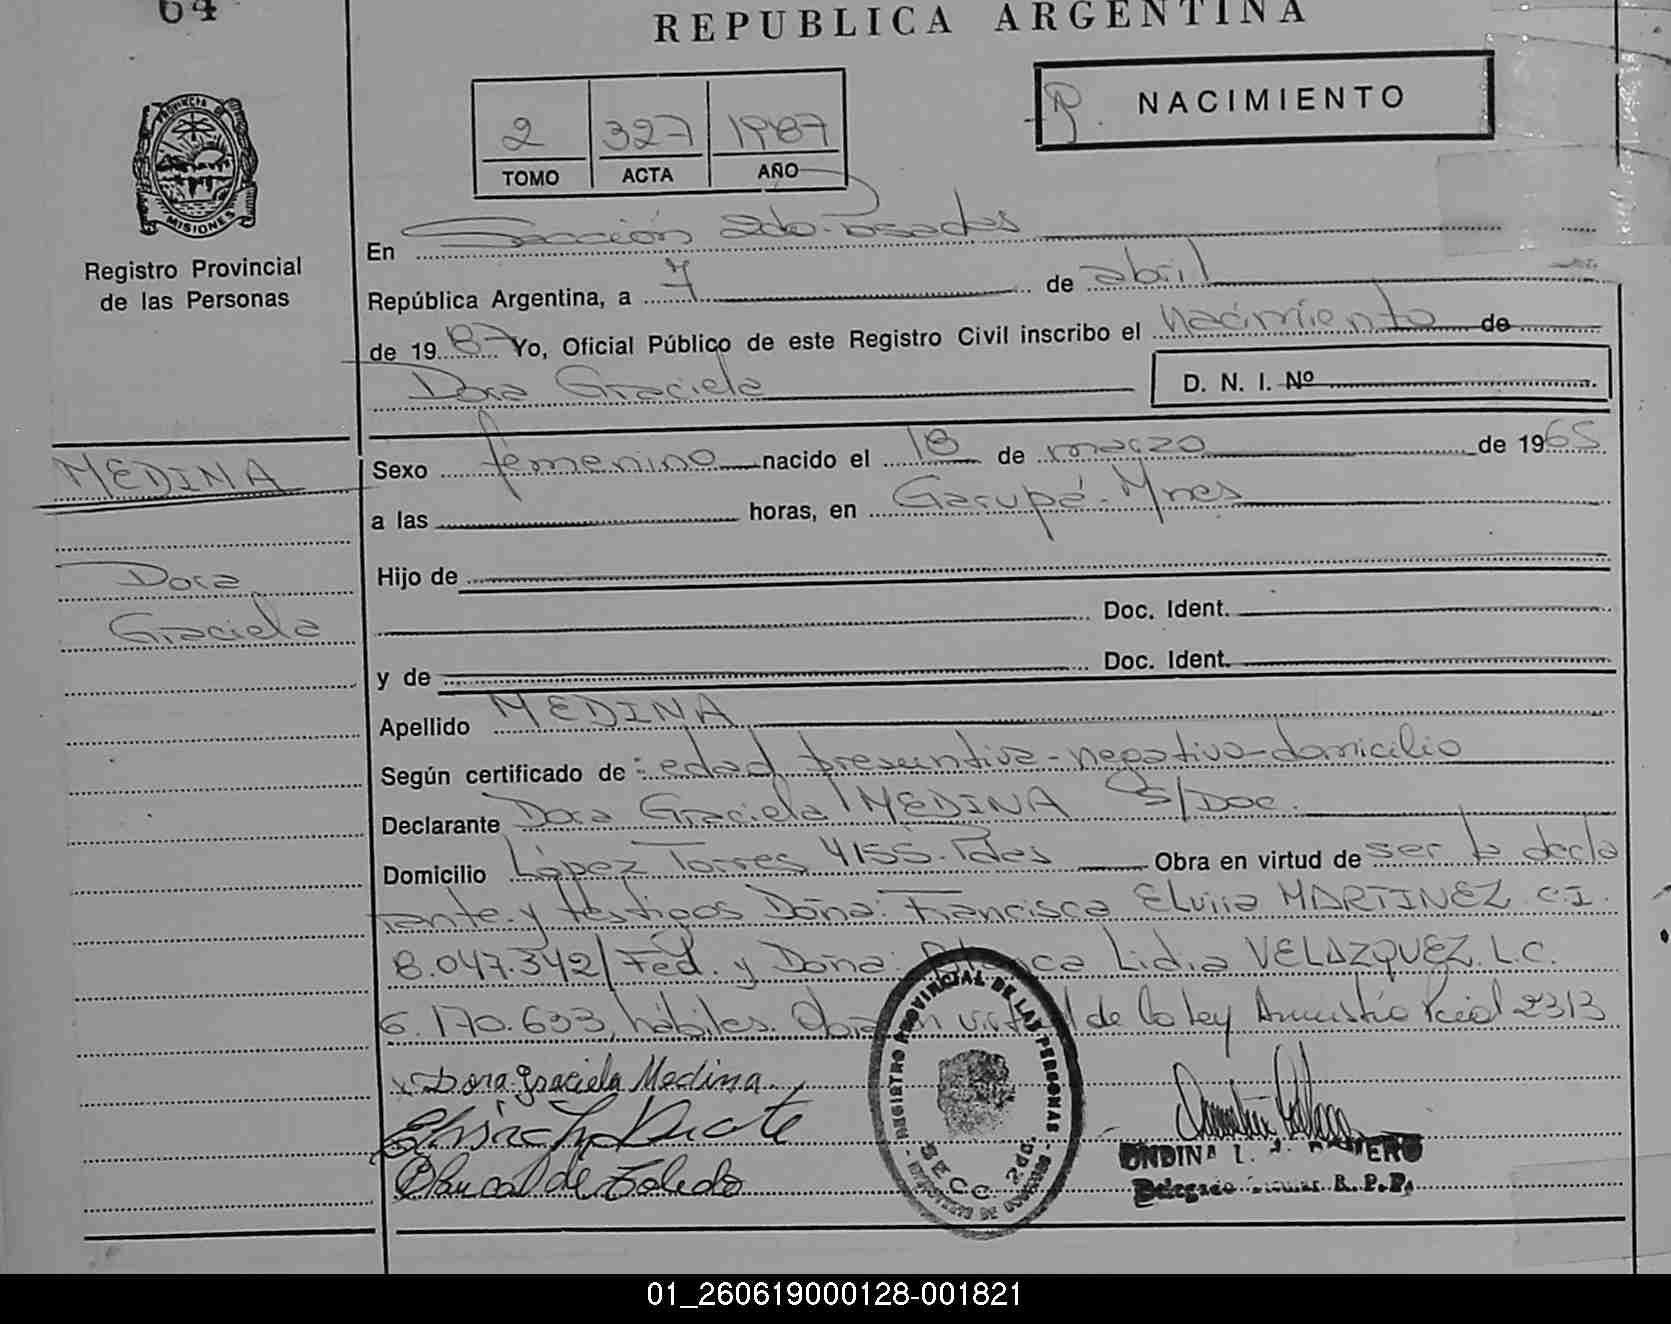 64
REPUBLICA ARGENTINA
2 327 1987
TOMO ACTA AÑO
NACIMIENTO
PROVINCIA DE MISIONES
Registro Provincial
de las Personas
En Sección 2da-Posadas
República Argentina, a 7 de abril
de 1987 Yo, Oficial Público de este Registro Civil inscribo el nacimiento de
Dora Graciela D. N. I. Nº
MEDINA
Sexo femenino nacido el 18 de marzo de 1965
a las horas, en Garupá-Mnes
Dora
Graciela
Hijo de
Doc. Ident.
y de Doc. Ident.
Apellido MEDINA
Según certificado de: edad presuntiva-negativo-domicilio
Declarante Dora Graciela MEDINA S/Doc.
Domicilio López Torres 4155. Pdas Obra en virtud de ser la decla
rante y testigos Doña: Francisca Elvira MARTINEZ C.I.
8.047.342/Fed. y Doña: Blanca Lidia VELAZQUEZ. L.C.
6.170.633, hábiles. Obra en virtud de la ley Amnistía Pcial 2313
x Dora Graciela Medina
de Toledo
REGISTRO PROVINCIAL DE LAS PERSONAS
SECC. 2da.
ONDINA
Delegado R.P.P.
01_260619000128-001821